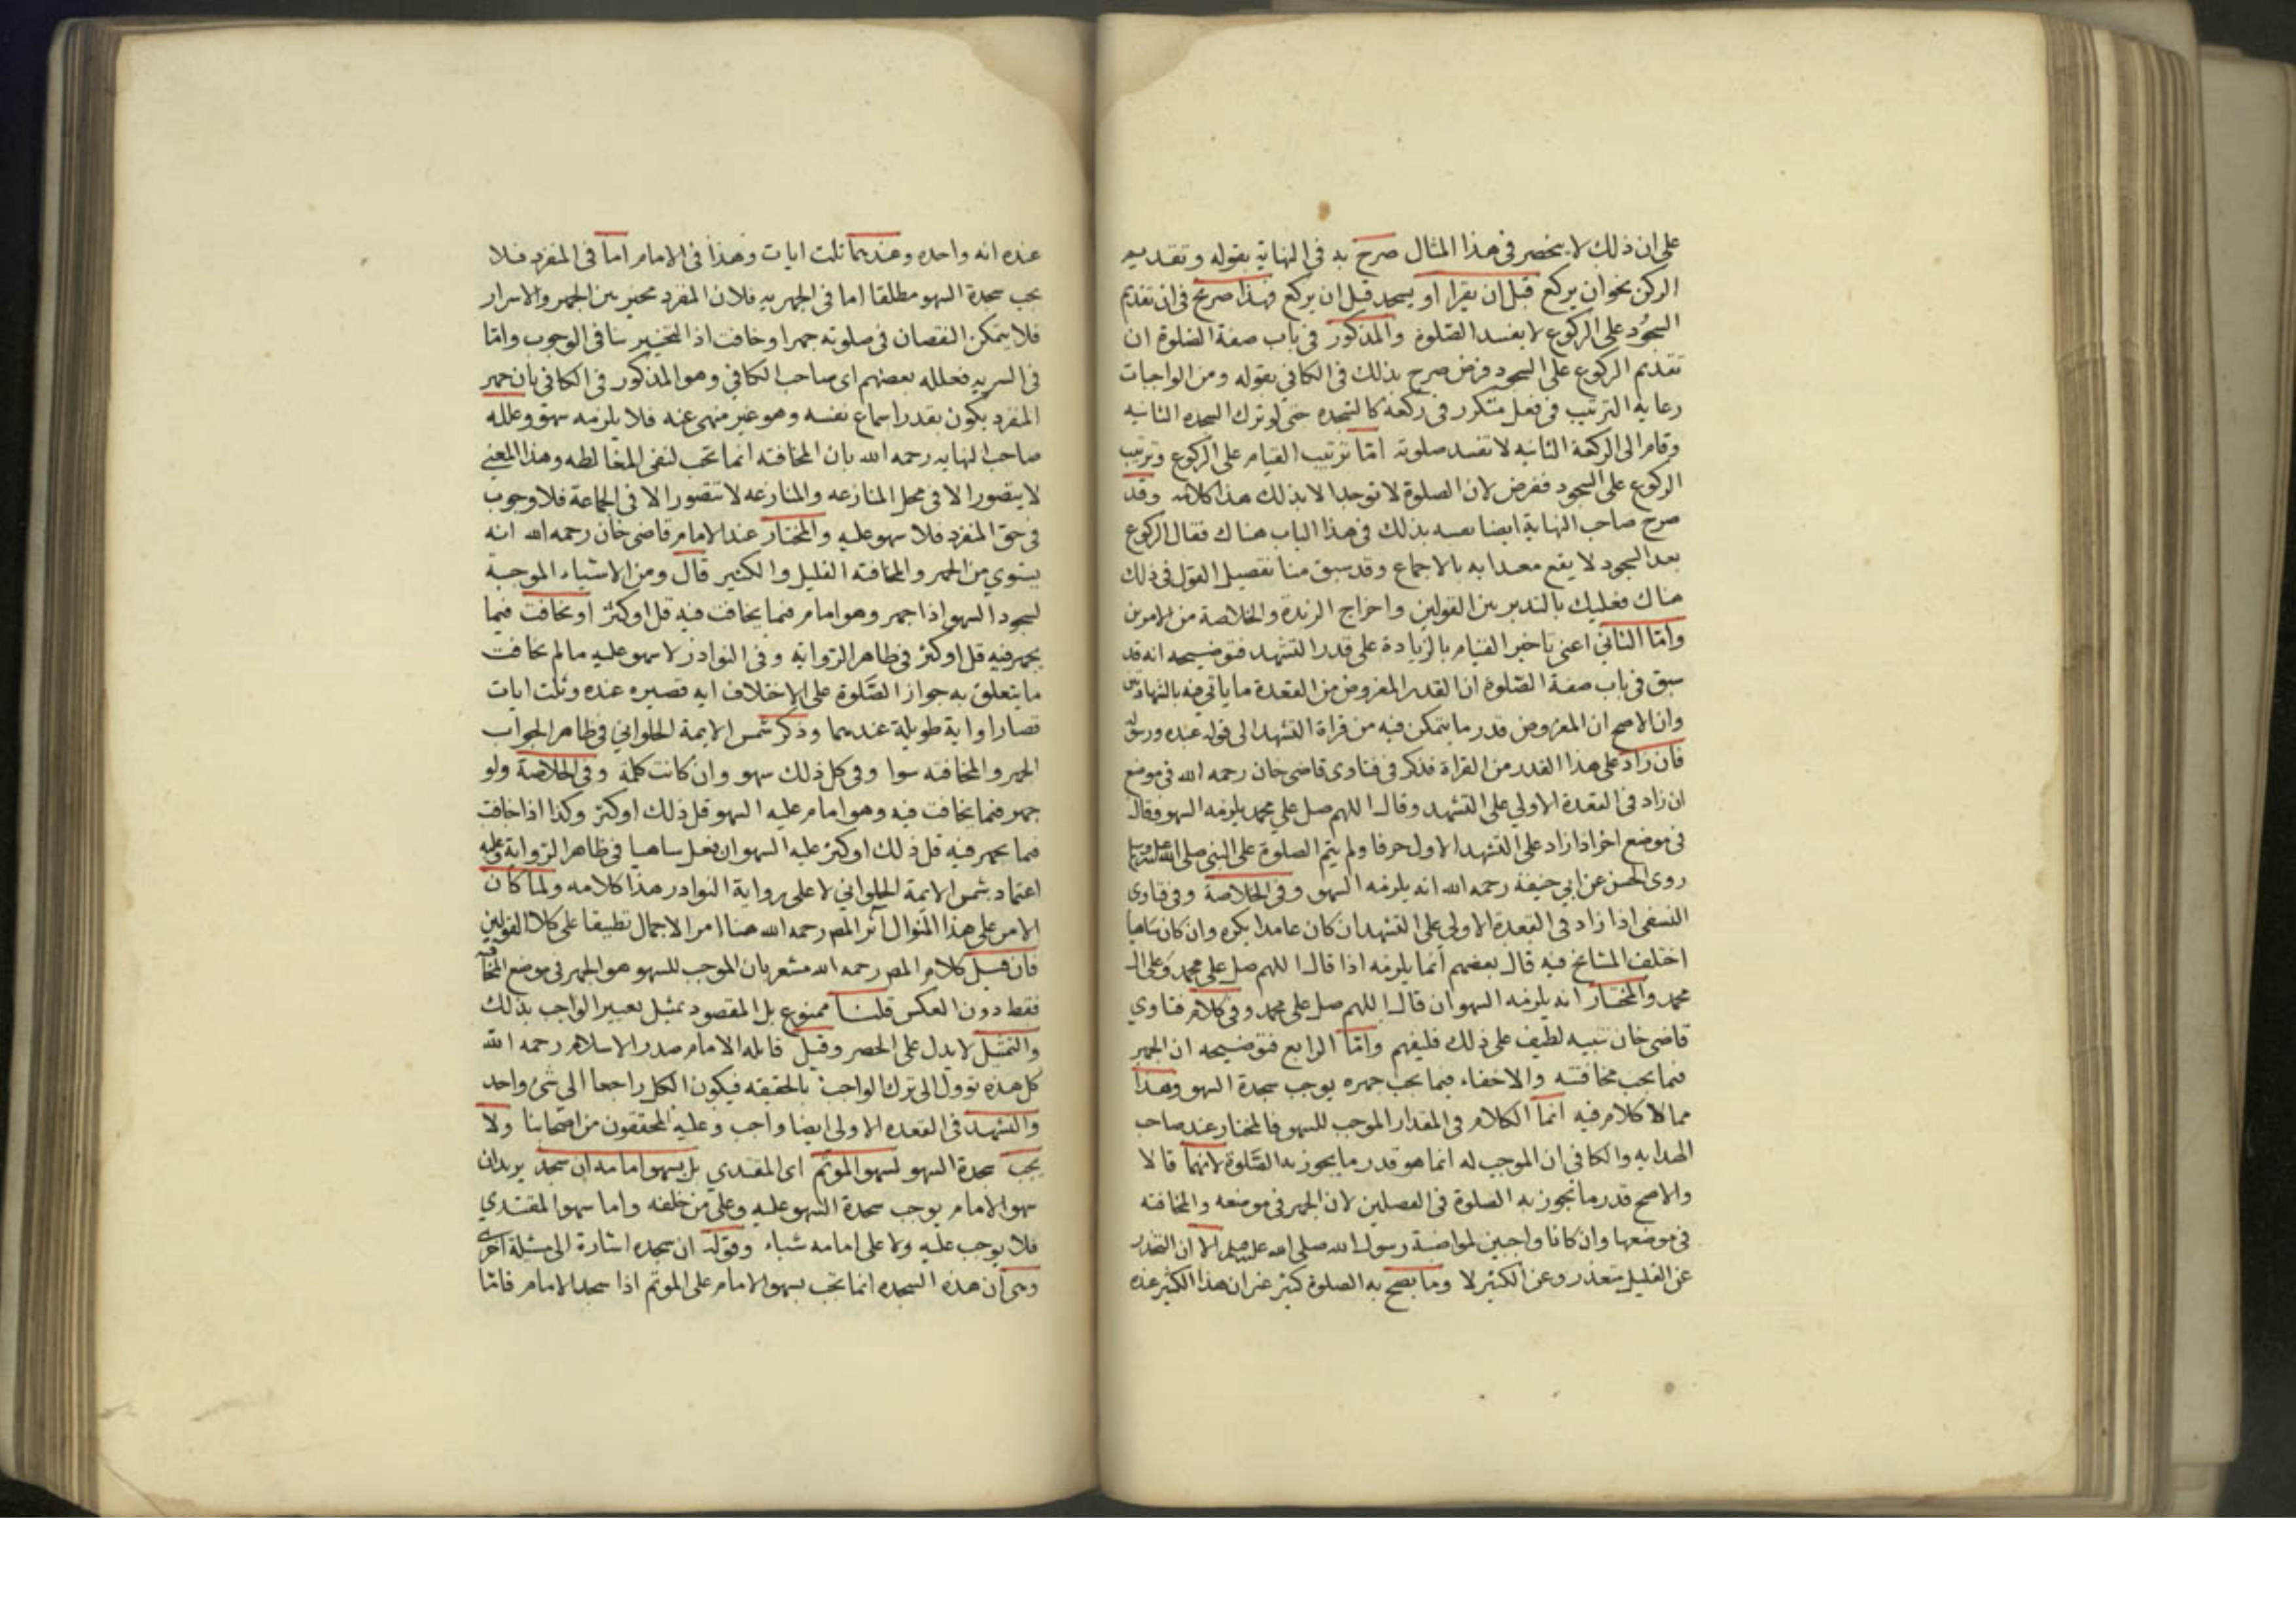 على ان ذلك لا ينحصر فى هذا المثال صرح به فى النهاية بقوله وتقديم
الركن نحو ان يركع قبل ان يقرا او يسجد قبل ان يركع فهذا صريح فى ان تقديم
السجود على الركوع لا يفسد الصلوة والمذكور فى باب صفة الصلوة ان
تقديم الركوع على السجود فرض صرح بذلك فى الكافي بقوله ومن الواجبات
رعاية الترتيب فى فعل متكرر فى ركعة كالسجده حتى لو ترك السجده الثانيه
وقام الى الركعة الثانيه لا تفسد صلوته امّا ترتيب القيام على الركوع وترتيب
الركوع على السجود ففرض لان الصلوة لا توجد الا بذلك هذا كلامه وقد
صرح صاحب النهاية ايضا نفسه بذلك فى هذا الباب هناك فقال الركوع
بعد السجود لا يقع معتدا به بالاجماع وقد سبق منا تفصيل القول فى ذلك
هناك فعليك بالتدبر بين القولين واخراج الزبدة والخلاصة من الامرين
وامّا الثاني اعنى تاخير القيام بالزيادة على قدر التشهد فتوضيحه انه قد
سبق فى باب صفة الصلوة ان القدر المفروض من القعدة ما ياتي فيه بالشهادتين
وان الاصح ان المفروض قدر ما يتمكن فيه من قراة التشهد الى قوله عبده ورسوله
فان زاد على هذا القدر من القراة فذكر فى فتاوى قاضى خان رحمه الله فى موضع
ان زاد فى القعدة الاولي على التشهد وقال اللهم صل علي محمد يلزمه السهو وقال
فى موضع اخر اذا زاد على التشهد الاول حرفا ولم يتم الصلوة على النبي صلى الله عليه وسلم
روى الحسن عن ابي حنيفة رحمه الله انه يلزمه السهو وفى الخلاصة وفى فتاوى
النسفى اذا زاد فى القعدة الاولي على التشهد ان كان عامدا يكره وان كان ساهيا
اختلف المشايخ فيه قال بعضهم انما يلزمه اذا قال اللهم صل على محمد وعلى ال
محمد والمختار انه يلزمه السهو ان قال اللهم صل على محمد وفى كلام فتاوي
قاضى خان تنبيه لطيف على ذلك فليفهم وامّا الرابع فتوضيحه ان الجهر
فيما يجب مخافتته والاخفاء فيما يجب جهره يوجب سجدة السهو وهذا
مما لا كلام فيه انما الكلام فى المقدار الموجب للسهو فالمختار عند صاحب
الهدايه والكافى ان الموجب له انما هو قدر ما يجوز به الصّلوة لانهما قالا
والاصح قدر ما تجوز به الصلوة فى الفصلين لان الجهر فى موضعه والمخافته
فى موضعها وان كانا واجبين لمواضبة رسول الله صلى الله عليه وسلم الا ان التحذر
عن القليل متعذر وعن الكثير لا وما يصح به الصلوة كثير غير ان هذا الكثير عنده
عنده انه واحده وعندهما ثلث ايات وهذا فى الامام امّا فى المنفرد فلا
يجب سجدة السهو مطلقا اما فى الجهريه فلان المنفرد مخير بين الجهر والاسرار
فلا يتمكن النقصان فى صلوته جهرا وخافت اذ التخيير ينافى الوجوب وامّا
فى السريه فعلله بعضهم اى صاحب الكافي وهو المذكور فى الكافى بان جهر
المنفرد يكون بقدر اسماع نفسه وهو غير منهى عنه فلا يلزمه سهو وعلله
صاحب النهايه رحمه الله بان المخافته انما تجب لنفى المغالطه وهذا المعنى
لا يتصور الا فى محل المنازعه والمنازعه لا تتصور الا فى الجماعة فلا وجوب
فى حق المنفرد فلا سهو عليه والمختار عند الامام قاضى خان رحمه الله انه
يستوي من الجهر والمخافته القليل والكثير قال ومن الاشياء الموجبة
لسجود السهو اذا جهر وهو امام فيما يخافت فيه قل او كثر او يخافت فيما
يجهر فيه قل او كثر فى ظاهر الرواية وفى النوادر لا سهو عليه ما لم يخافت
ما يتعلق به جواز الصّلوة على الاختلاف ايه قصيره عنده وثلث ايات
قصارا واية طويلة عندهما وذكر شمس الايمة الحلواني فى ظاهر الجواب
الجهر والمخافته سوا وفى كل ذلك سهو وان كانت كلمة وفى الخلاصة ولو
جهر فيما يخافت فيه وهو امام عليه السهو قل ذلك او كثر وكذا اذا خافت
فيما يجهر فيه قل ذلك او كثر عليه السهو ان فعل ساهيا فى ظاهر الرواية وعليه
اعتماد شمس الايمة الحلواني لا على رواية النوادر هذا كلامه ولما كان
الامر على هذا المنوال آثر المصر رحمه الله هنا امر الاجمال تطبيقا على كلا القولين
فان قيل كلام المصر رحمه الله مشعر بان الموجب للسهو هو الجهر فى موضع المخافته
فقط دون العكس قلنا ممنوع بل المقصود تمثيل تعبير الواجب بذلك
والتمثيل لا يدل على الحصر وقيل قايله الامام صدر الاسلام رحمه الله
كل هذه تؤول الى ترك الواجب بالحقيقه فيكون الكل راجعا الى شئ واحد
والتشهد فى القعده الاولى ايضا واجب وعليه المحققون من اصحابنا ولا
يجب سجدة السهو لسهو الموتم اى المقتدي بل بسهو امامه ان سجد يريد ان
سهو الامام يوجب سجدة السهو عليه وعلي من خلفه واما سهو المقتدي
فلا يوجب عليه ولا على امامه شياء وقوله ان سجده اشارة الى مسئلة اخرى
وهى ان هذه السجده انما تجب بسهو الامام على الموتم اذا سجد الامام فامّا